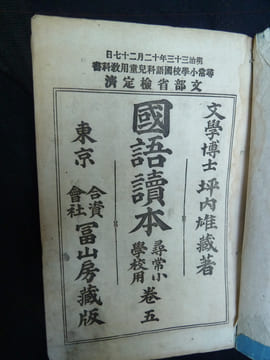 明治三十三年十二月二十七日
尋常小學校國語科兒童用教科書
文部省檢定濟
文學博士 坪内雄藏著
國語讀本 尋常小學校用 卷五
東京 合資會社 冨山房藏版